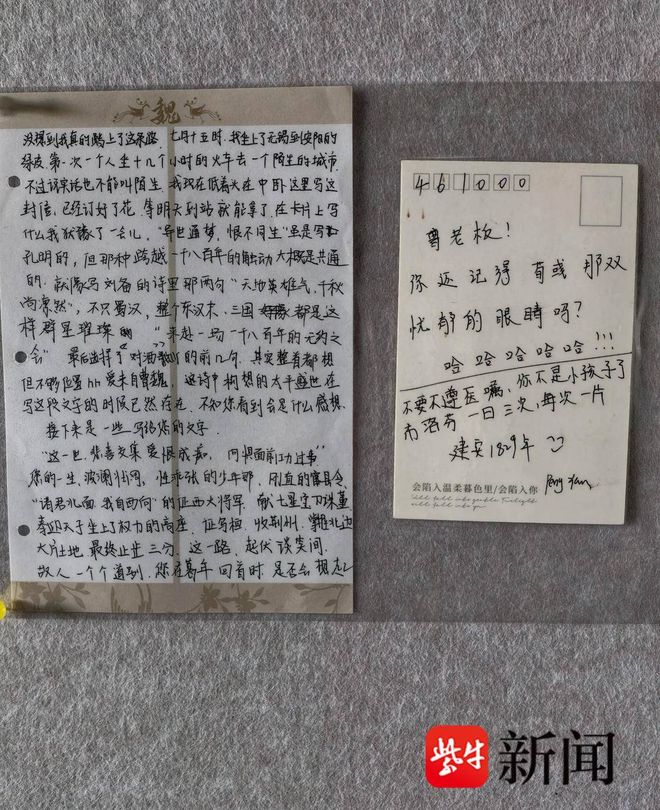 魏
没想到我真的踏上了这条路. 七月十五时.我坐上了无锡到安阳的
绿皮.第一次一个人坐十几个小时的火车去一个陌生的城市.
不过说实话也不能叫陌生.我现在低着头在中卧这里写这
封信.已经订好了花.等明天到站就能拿了.在卡片上写
什么我犹豫了一会儿."异世通梦,恨不同生"虽是写
孔明的,但那种跨越一千八百年的触动大概是共通
的.就像写刘备的诗里那两句"天地英雄气,千秋
尚凛然",不只蜀汉,整个东汉末、三国都是这
样群星璀璨的."来赴一场一千八百年的无约之
会" 最后选择了"对酒歌"的前几句.其实整首都想
但不够位置hh 爱来自曹魏,这诗中构想的太平盛世在
写这段文字的时候已然存在.不知您看到会是什么感想.
接下来是一些写给您的文字.
"这一世.悲喜交集爱恨成，问惧面前功过事"
您的一生,波澜壮阔,性乖张的少年郎,刚直的县令,
"诸君北面,我自西向"的征西大将军.献七星宝刀
天子坐上了权力的高座.征荆州.北边
大片土地.最终止步三分.这一路.起伏谈笑间.
故人一个个道别.您在暮年回首时.是否会想起
461000
曹老板!
你还记得 荀彧 那双
忧郁的眼睛吗?
哈哈哈哈哈!!!
不要不遵医嘱,你不是小孩子了
布洛芬 一日三次,每次一片
建安1829年
会陷入温柔暮色里/会陷入你
紫牛新闻